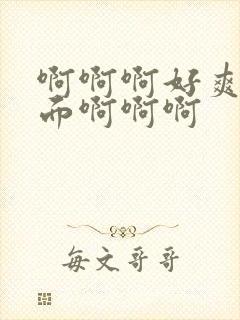 啊啊啊好爽
而啊啊啊
每文哥哥